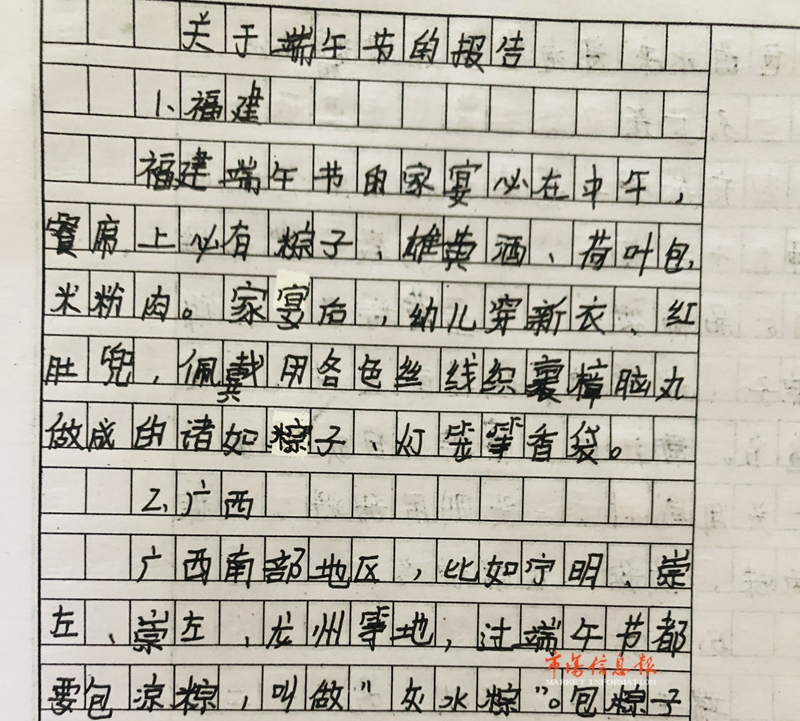 关于端午节的报告
1、福建
福建端午节的家宴必在中午,
餐席上必有粽子、雄黄酒、荷叶包,
米粉肉。家宴后,幼儿穿新衣、红
肚兜,佩戴用各色丝线织裹樟脑丸
做成的诸如粽子、灯笼等香袋。
2、广西
广西南部地区,比如宁明、崇
左、崇左、龙州等地,过端午节都
要包凉粽,叫做"灰水粽"。包粽子
市场信息报
MARKET INFORMATION